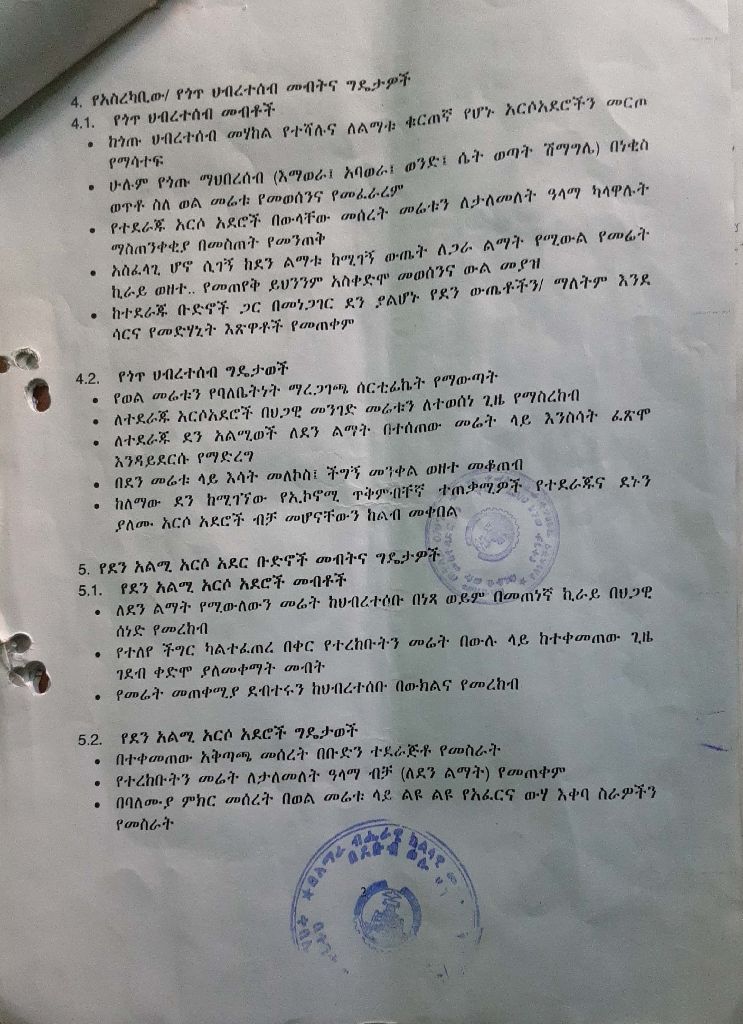 4. የአስረካቢው/ የጎጥ ህብረተሰብ መብትና ግዴታዎች
4.1. የጎጥ ህብረተሰብ መብቶች
• ከጎጡ ህብረተሰብ መሃከል የተሻሉና ለልማቱ ቁርጠኛ የሆኑ አርሶአደሮችን መርጦ
የማሳተፍ
• ሁሉም የጎጡ ማህበረሰብ (እማወራ፤ አባወራ፤ ወንድ፤ ሴት ወጣት ሽማግሌ) በነቂስ
ወጥቶ ስለ ወል መሬቱ የመወሰንና የመፈራረም
• የተደራጁ አርሶ አደሮች በውላቸው መሰረት መሬቱን ለታለመለት ዓላማ ካላዋሉት
ማስጠንቀቂያ በመስጠት የመንጠቅ
• አስፈላጊ ሆኖ ሲገኝ ከደን ልማቱ ከሚገኝ ውጤት ለጋራ ልማት የሚውል የመሬት
ኪራይ ወዘተ.. የመጠየቅ ይህንንም አስቀድሞ መወሰንና ውል መያዝ
• ከተደራጁ ቡድኖች ጋር በመነጋገር ደን ያልሆኑ የደን ውጤቶችን/ ማለትም እንደ
ሳርና የመድሃኒት እጽዋቶች የመጠቀም
4.2. የጎጥ ህብረተሰብ ግዴታወች
• የወል መሬቱን የባለቤትነት ማረጋገጫ ሰርቲፊኬት የማውጣት
• ለተደራጁ አርሶአደሮች በህጋዊ መንገድ መሬቱን ለተወሰነ ጊዜ የማስረከብ
• ለተደራጁ ደን አልሚወች ለደን ልማት በተሰጠው መሬት ላይ እንስሳት ፈጽሞ
እንዳይደርሱ የማድረግ
• በደን መሬቱ ላይ እሳት መለኮስ፤ ችግኝ መንቀል ወዘተ መቆጠብ
• ከለማው ደን ከሚገኘው የኢኮኖሚ ጥቅምብቸኛ ተጠቃሚዎች የተደራጁና ደኑን
ያለሙ አርሶ አደሮች ብቻ መሆናቸውን ከልብ መቀበል
5. የደን አልሚ አርሶ አደር ቡድኖች መብትና ግዴታዎች
5.1. የደን አልሚ አርሶ አደሮች መብቶች
• ለደን ልማት የሚውለውን መሬት ከህብረተሶቡ በነጻ ወይም በመጠነኛ ኪራይ በህጋዊ
ሰነድ የመረከብ
• የተለየ ችግር ካልተፈጠረ በቀር የተረከቡትን መሬት በውሉ ላይ ከተቀመጠው ጊዜ
ገደብ ቀድሞ ያለመቀማት መብት
• የመሬት መጠቀሚያ ደብተሩን ከህብረተሰቡ በውክልና የመረከብ
5.2. የደን አልሚ አርሶ አደሮች ግዴታወች
• በተቀመጠው አቅጣጫ መሰረት በቡድን ተደራጅቶ የመስራት
• የተረከቡትን መሬት ለታለመለት ዓላማ ብቻ (ለደን ልማት) የመጠቀም
• በባለሙያ ምክር መሰረት በወል መሬቱ ላይ ልዩ ልዩ የአፈርና ውሃ እቀባ ስራዎችን
የመስራት